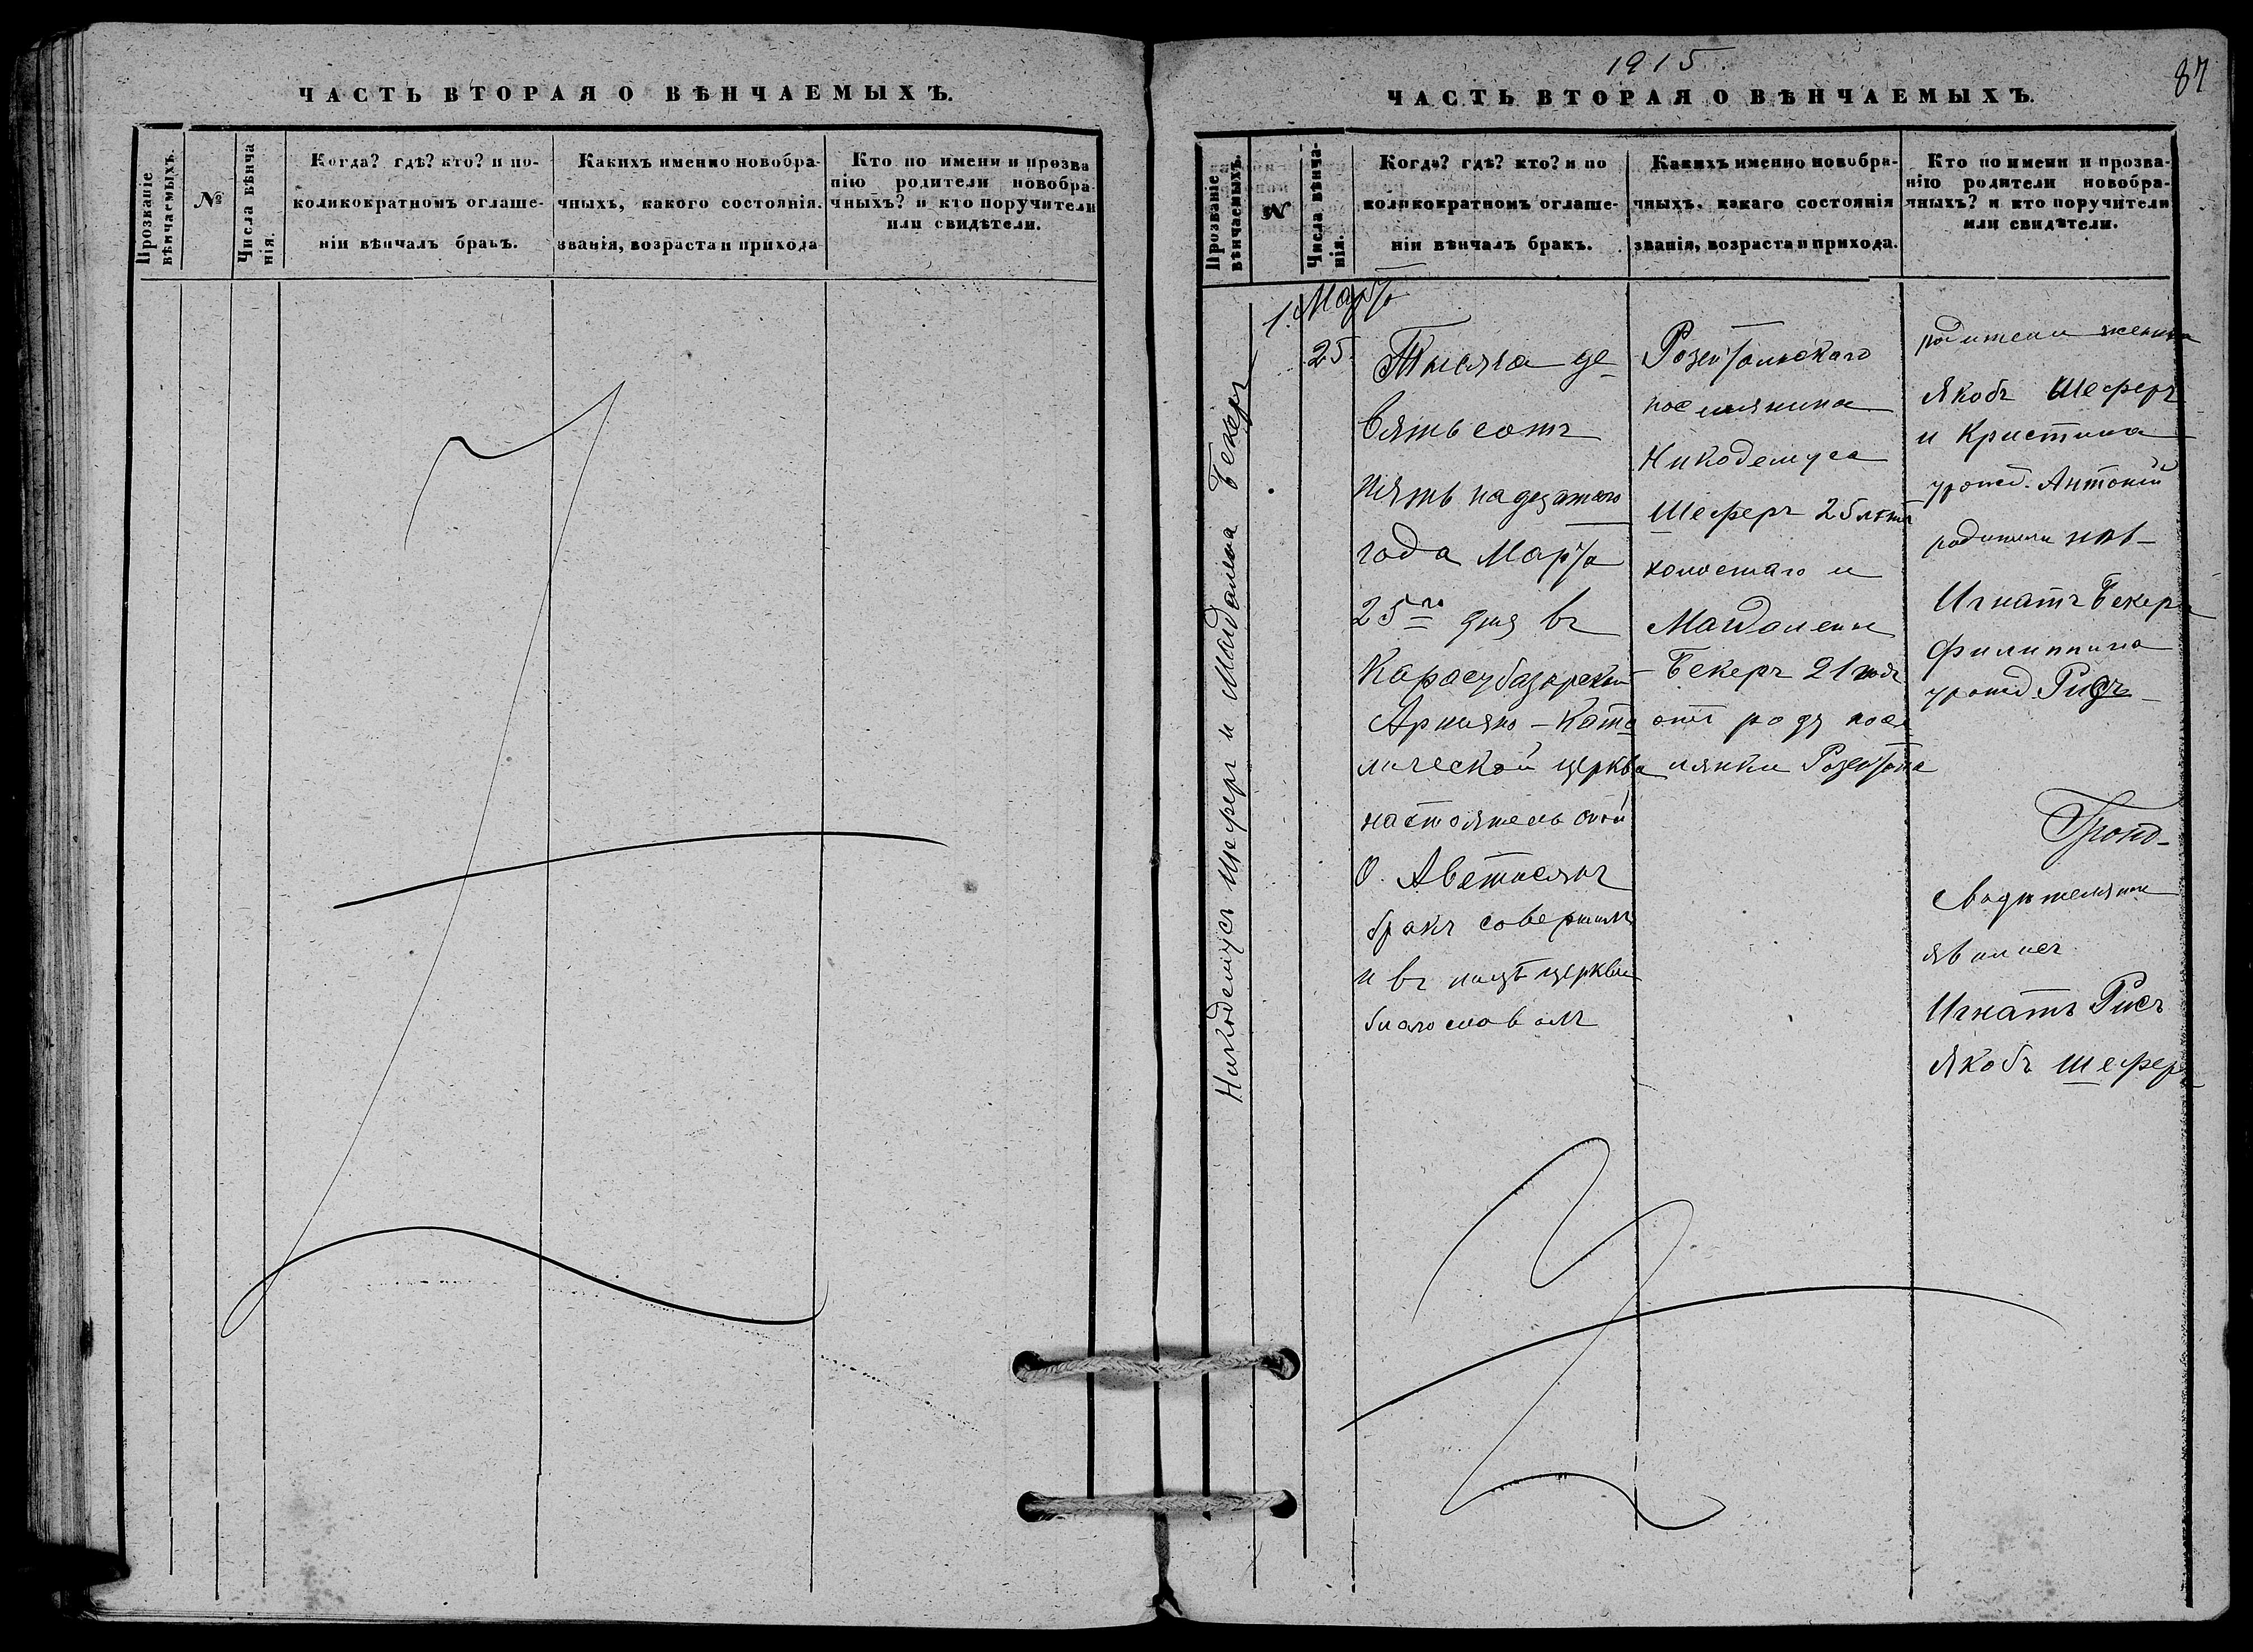 ЧАСТЬ ВТОРАЯ О ВѢНЧАЕМЫХЪ.
Прозваніе
вѣнчаемыхъ.
№
Числа вѣнча
нія.
Когда? гдѣ? кто? и по-
коликократномъ оглаше-
ніи вѣнчалъ бракъ.
Какихъ именно новобра-
чныхъ, какого состоянія.
званія, возраста и прихода
Кто по имени и прозва
нію родители новобра-
чныхъ? и кто поручители
или свидѣтели.
1915
87
ЧАСТЬ ВТОРАЯ О ВѢНЧАЕМЫХЪ.
Прозваніе
вѣнчаемыхъ.
№
Числа вѣнча-
нія.
Когда? гдѣ? кто? и по
коликократномъ оглаше-
ніи вѣнчалъ бракъ.
Какихъ именно новобра-
чныхъ. какаго состоянія
званія, возраста и прихода.
Кто по имени и прозва-
нію родители новобра-
чныхъ? и кто поручители
или свидѣтели.
Никодемусъ Шеферъ и Магдалена Бекеръ
1. Марта
25.
Тысяча де
вятьсотъ
пятьнадезатаго
года Марта
25го дня въ
Карасубазарской
Армяно-Като
лической церкви
настоятель оной
О. Аветисянъ
бракъ совершилъ
и въ лицѣ церкви
благословилъ
Розентальскаго
поселянина
Никодемуса
Шеферъ 25 лѣтъ
холостаго и
Магдалены
Бекеръ 21 годъ
отъ роду посе
лянки Розенталя
родители жениха
Якобъ Шеферъ
и Кристина
урожд. Антоній
родители нев-
Игнатъ Бекеръ
Филиппина
урожд. Рисъ
явились
Игнатъ Рисъ
Якобъ Шеферъ